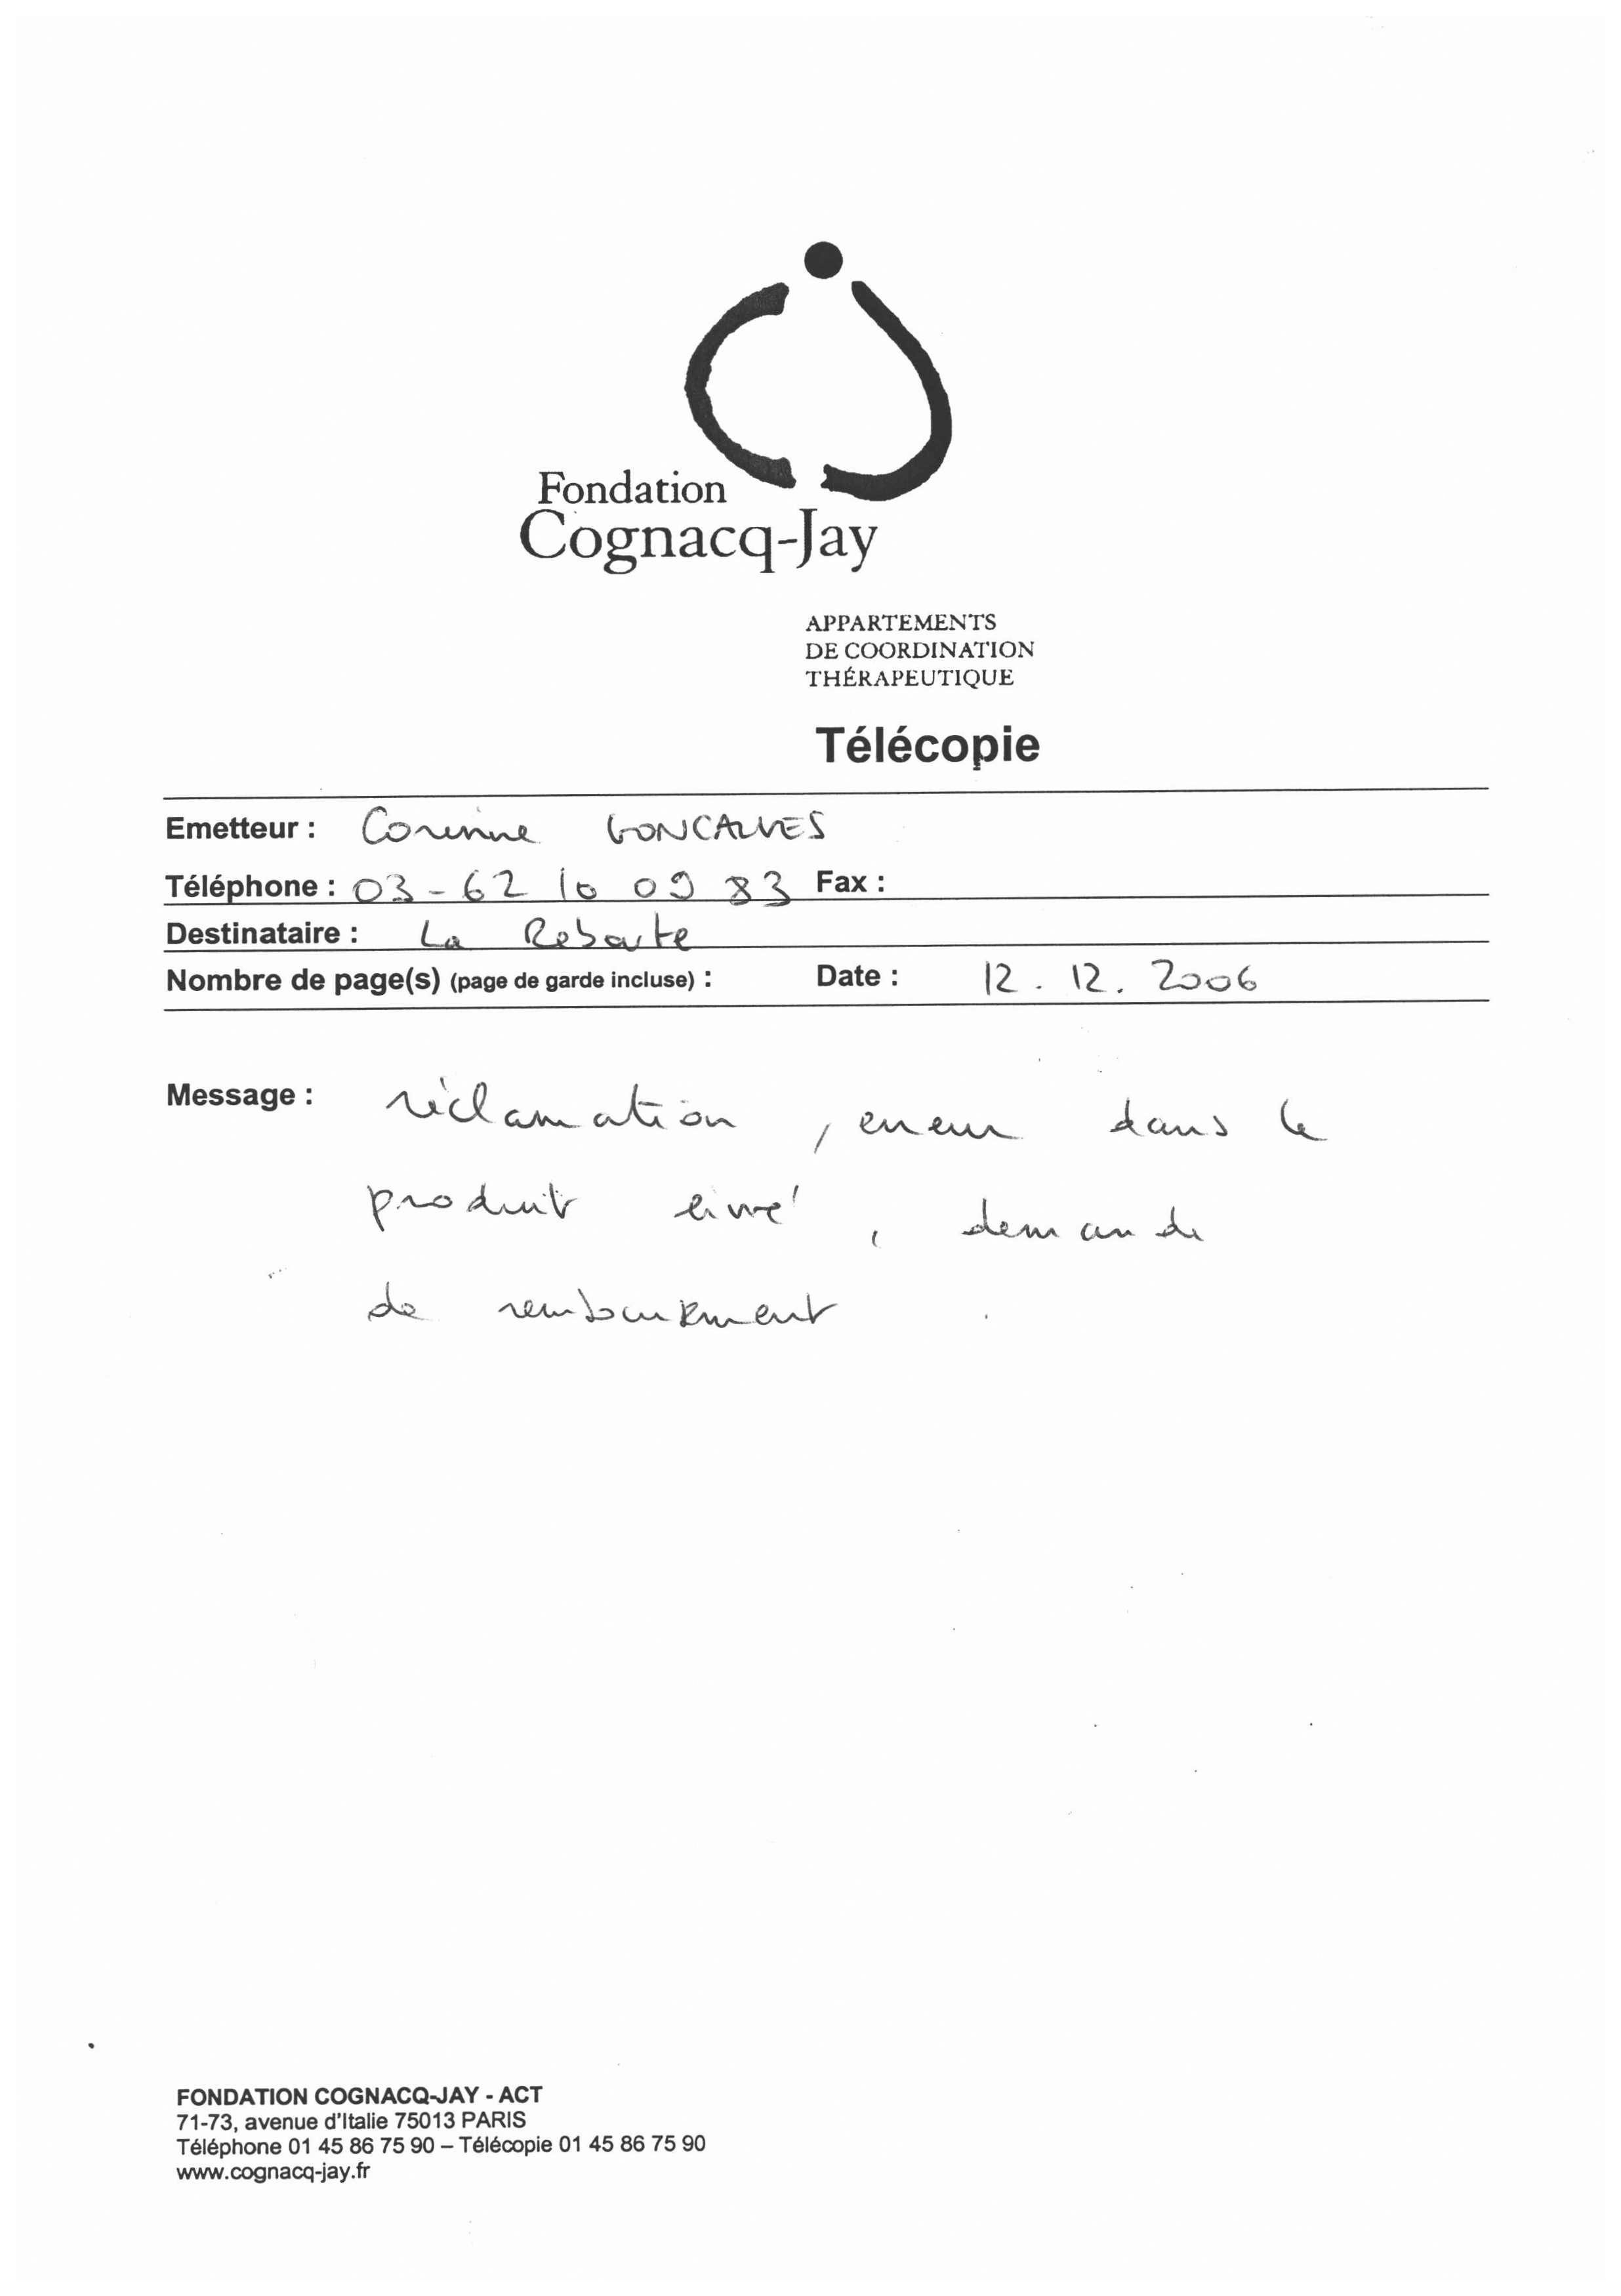 Fondation
Cognacq-Jay
APPARTEMENTS
DE COORDINATION
THÉRAPEUTIQUE
Télécopie
Emetteur : Corinne GONCALVES
Téléphone : 03-62 10 09 83 Fax :
Destinataire : La Redoute
Nombre de page(s) (page de garde incluse) : Date : 12. 12. 2006
Message : réclamation, erreur dans le
produit livré, demande
de remboursement.
FONDATION COGNACQ-JAY - ACT
71-73, avenue d'Italie 75013 PARIS
Téléphone 01 45 86 75 90 – Télécopie 01 45 86 75 90
www.cognacq-jay.fr